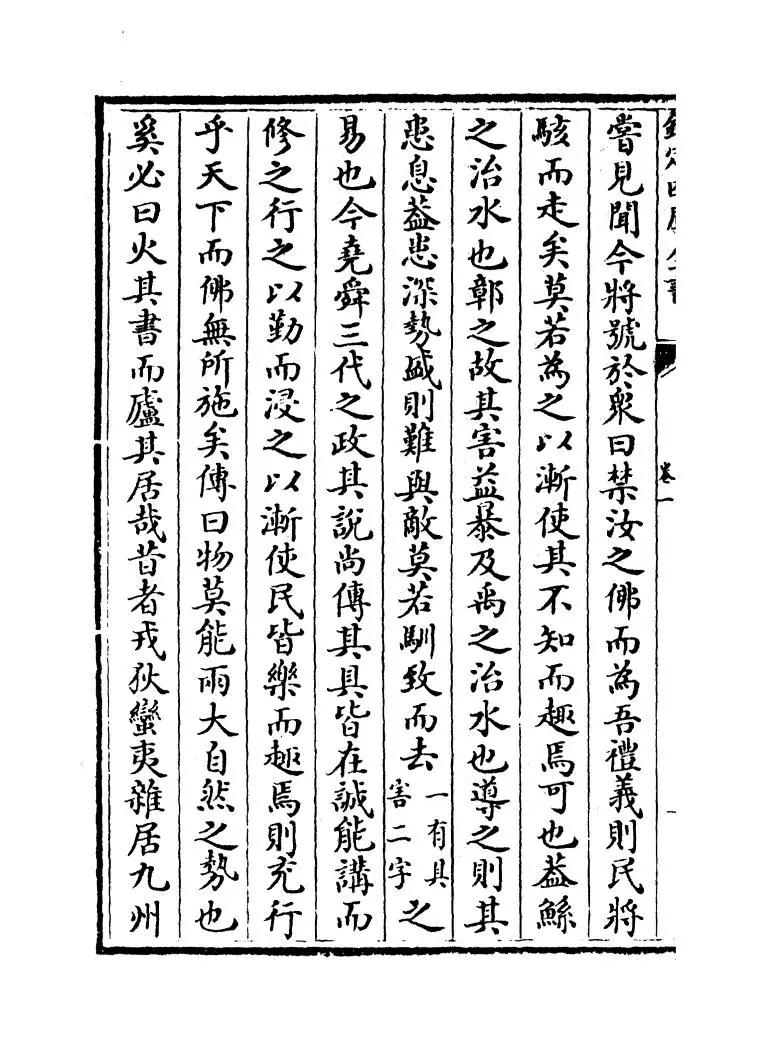 欽定四庫全書
卷一
嘗見聞今將號於衆曰禁汝之佛而為吾禮義則民將
駭而走矣莫若為之以漸使其不知而趣焉可也蓋鯀
之治水也鄣之故其害益暴及禹之治水也導之則其
患息蓋患深勢盛則難與敵莫若馴致而去一有其害二字之
易也今堯舜三代之政其說尚傳其具皆在誠能講而
修之行之以勤而浸之以漸使民皆樂而趣焉則充行
乎天下而佛無所施矣傳曰物莫能兩大自然之勢也
奚必曰火其書而廬其居哉昔者戎狄蠻夷雜居九州